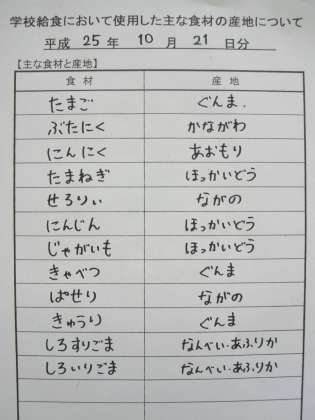 学校給食において使用した主な食材の産地について
平成 25 年 10 月 21 日分
【主な食材と産地】
食材 産地
たまご ぐんま.
ぶたにく かながわ
にんにく あおもり
たまねぎ ほっかいどう
せろりぃ ながの
にんじん ほっかいどう
じゃがいも ほっかいどう
きゃべつ ぐんま
ぱせり ながの
きゅうり ぐんま
しろすりごま なんべい・あふりか
しろいりごま なんべい・あふりか